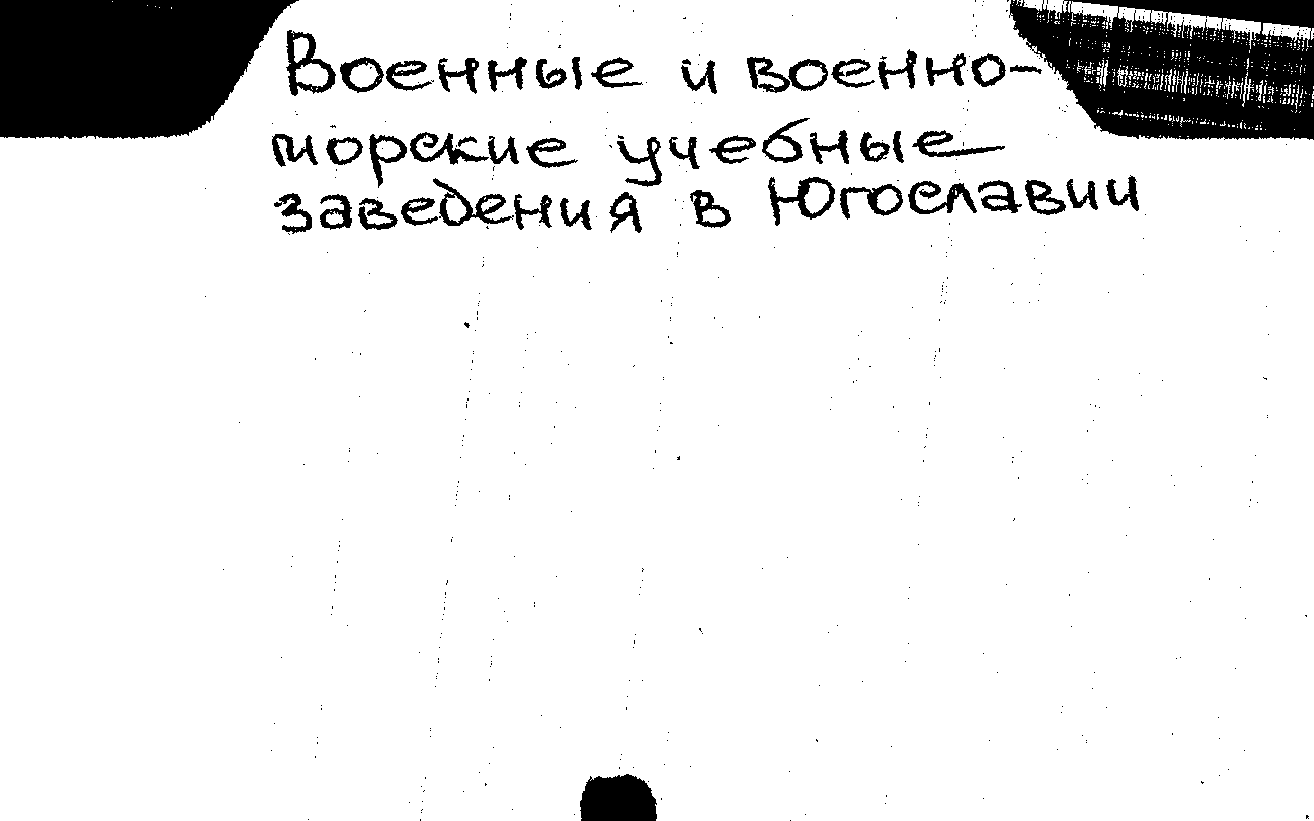 Военные и военно-
морские учебные
заведения в Югославии